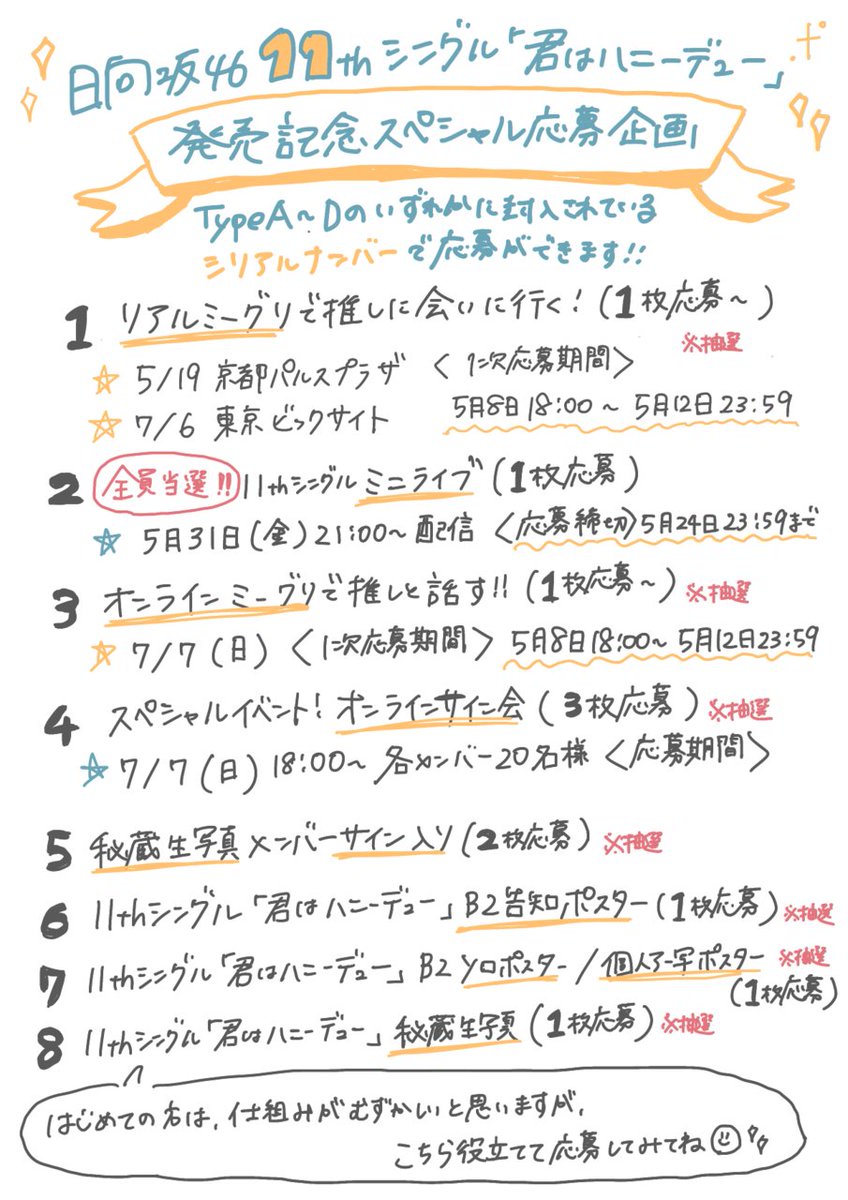 日向坂46 11thシングル「君はハニーデュー」
発売記念スペシャル応募企画
TypeA~Dのいずれかに封入されている
シリアルナンバーで応募ができます!!
1 リアルミーグリで推しに会いに行く!(1枚応募~)
※抽選
☆ 5/19 京都パルスプラザ 〈1次応募期間〉
☆ 7/6 東京ビックサイト 5月8日18:00~5月12日23:59
2 全員当選!! 11thシングルミニライブ(1枚応募)
☆ 5月31日(金)21:00~配信〈応募締切〉5月24日23:59まで
3 オンラインミーグリで推しと話す!!(1枚応募~)※抽選
☆ 7/7(日)〈1次応募期間〉5月8日18:00~5月12日23:59
4 スペシャルイベント!オンラインサイン会(3枚応募)※抽選
☆ 7/7(日)18:00~各メンバー20名様〈応募期間〉
5 秘蔵生写真メンバーサイン入り(2枚応募)※抽選
6 11thシングル「君はハニーデュー」B2告知ポスター(1枚応募)※抽選
7 11thシングル「君はハニーデュー」B2ソロポスター/個人アー写ポスター ※抽選
(1枚応募)
8 11thシングル「君はハニーデュー」秘蔵生写真(1枚応募)※抽選
はじめての方は、仕組みがむずかいいと思いますが、
こちら役立てて応募してみてね